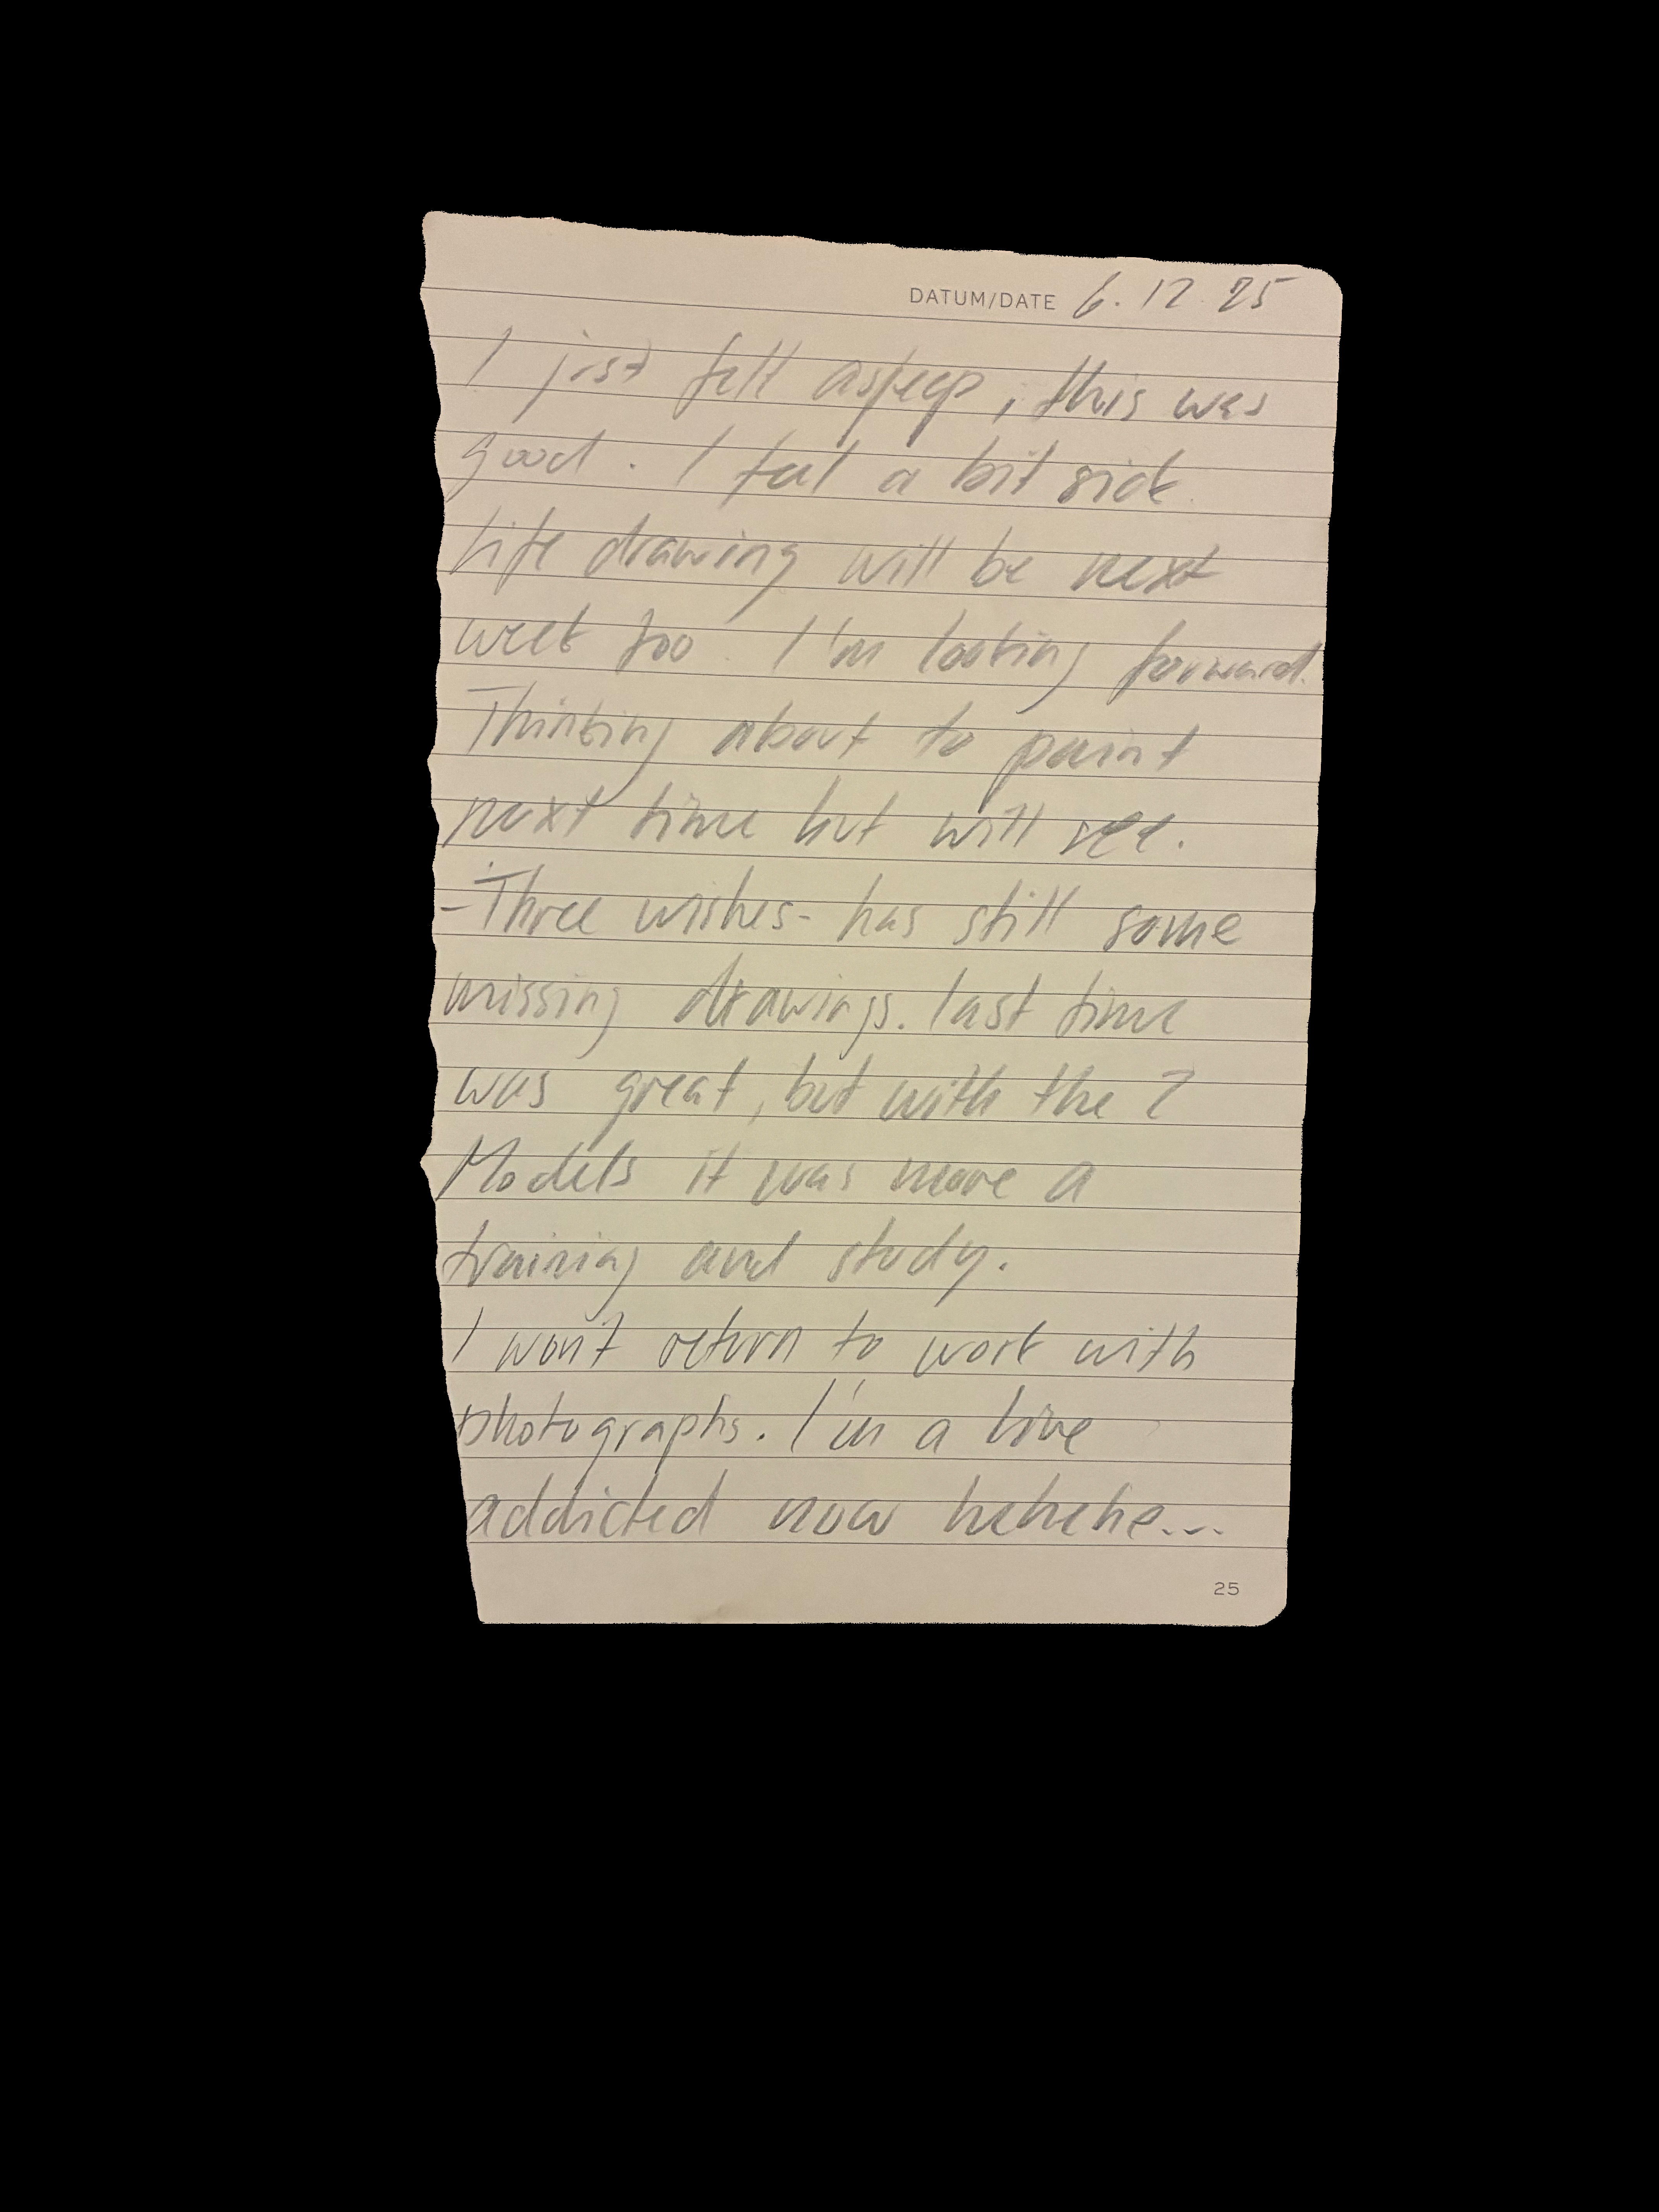 DATUM/DATE 6.12.25
I just fell asleep, this was
good. I feel a bit sick.
Life drawing will be next
week too. I'm looking forward.
Thinking about to paint
next time but will see.
-Three wishes- has still some
missing drawings. last time
was great, but with the 2
Models it was more a
training and study.
I won't return to work with
photographs. I'm a live
addicted now hehehe...
25